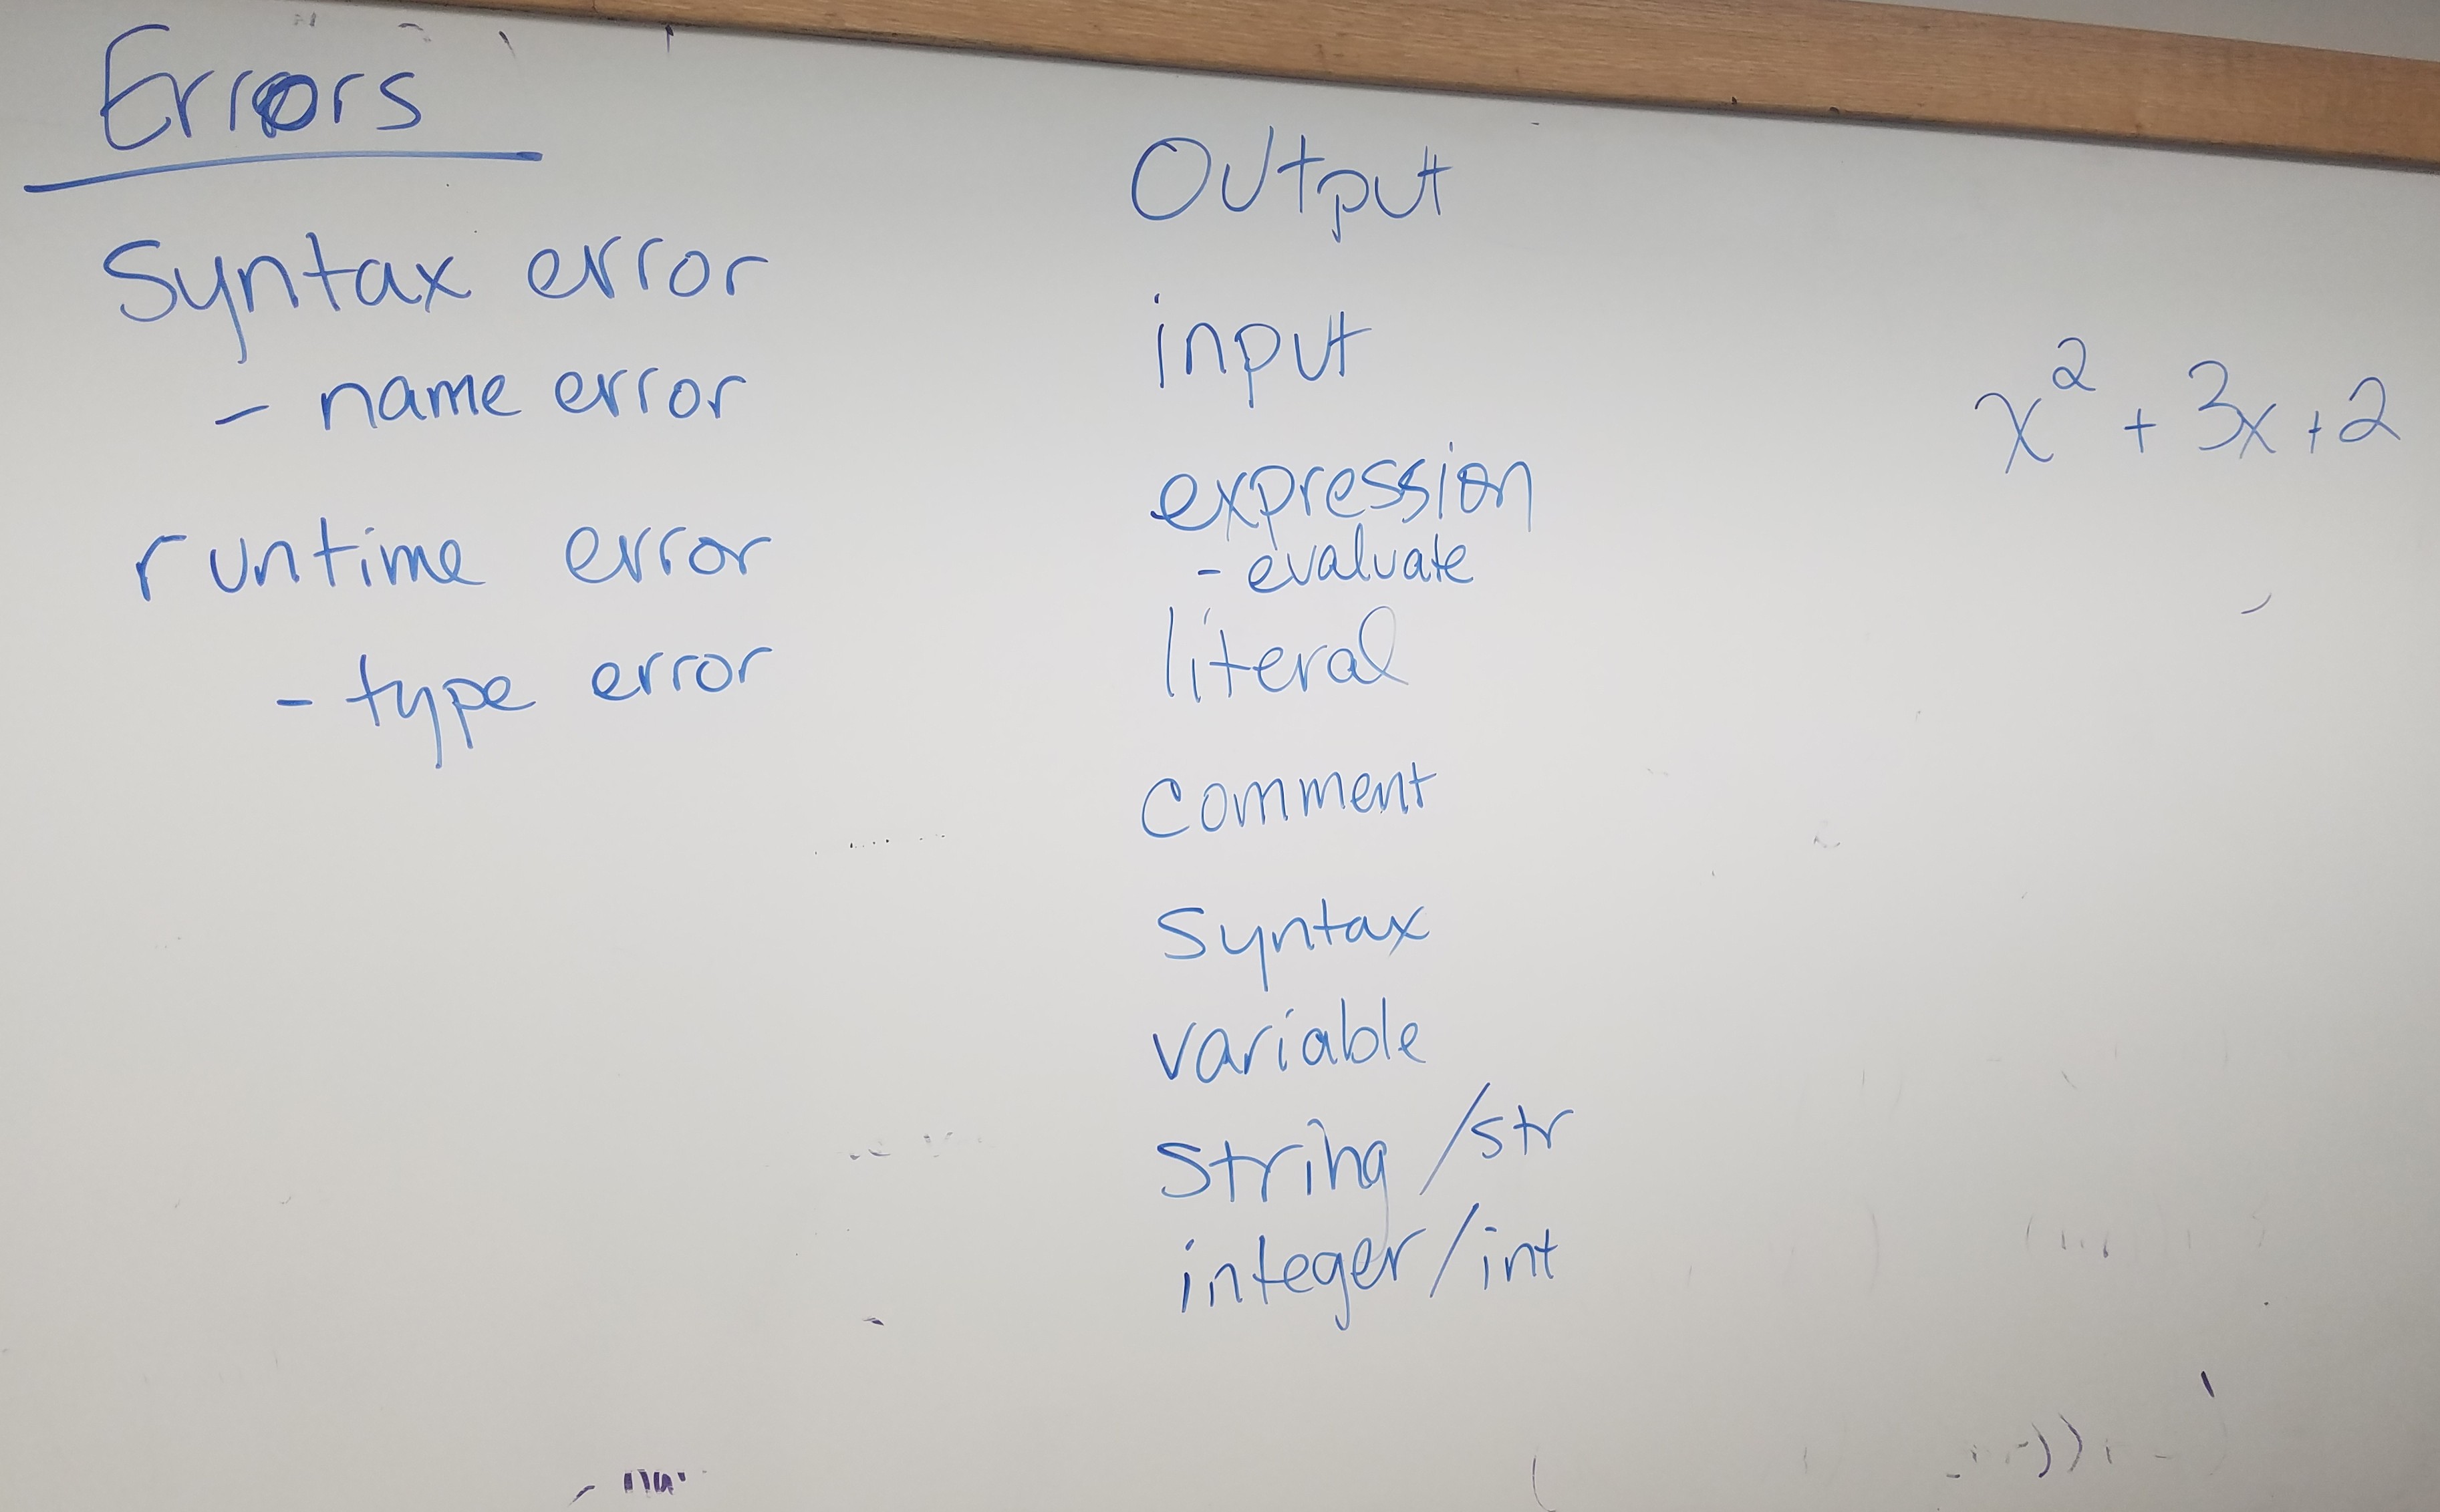 Errors
Syntax error
- name error
runtime error
- type error
Output
input
expression
- evaluate
literal
Comment
Syntax
variable
String /str
integer/int
x² + 3x + 2